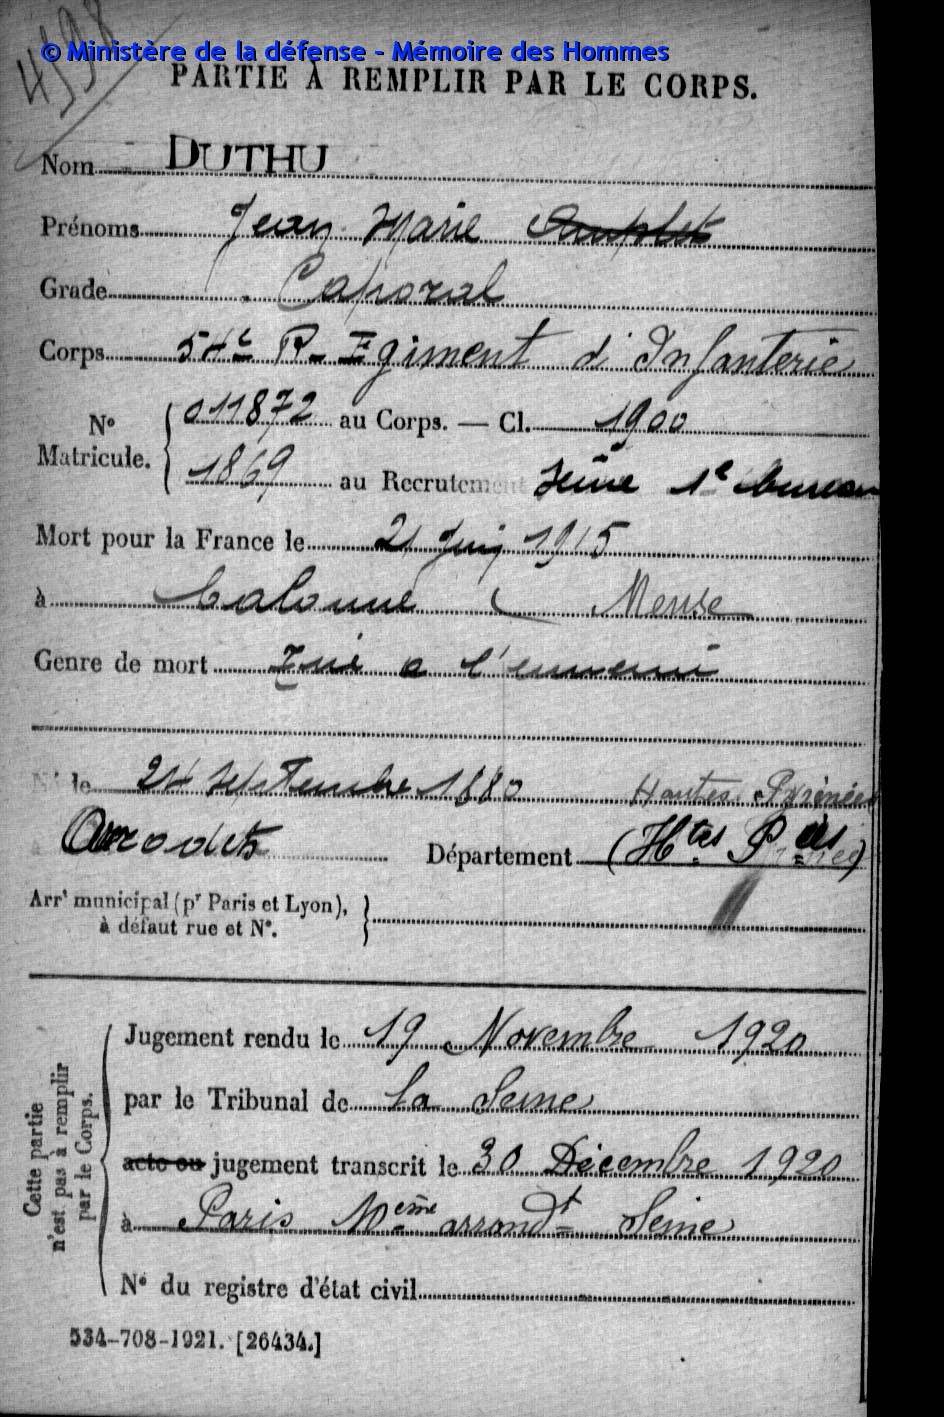 4598
© Ministère de la défense - Mémoire des Hommes
PARTIE À REMPLIR PAR LE CORPS.
Nom DUTHU
Prénoms Jean Marie
Grade Caporal
Corps 54e R-Egiment d'Infanterie
N° Matricule. 011872 au Corps. — Cl. 1900
1869 au Recrutement Seine 1e bureau
Mort pour la France le 21 Juin 1915
à Calonne ( Meuse
Genre de mort Tué a l'ennemi
Né le 24 Septembre 1880 Hautes Pyrénées
Arrodets Département (Htes P-ées)
Arrt municipal (pr Paris et Lyon),
à défaut rue et N°.
Cette partie n'est pas à remplir par le Corps.
Jugement rendu le 19 Novembre 1920
par le Tribunal de La Seine
acte ou jugement transcrit le 30 Décembre 1920
à Paris 10ème arrondt Seine
N° du registre d'état civil
534-708-1921. [26434.]